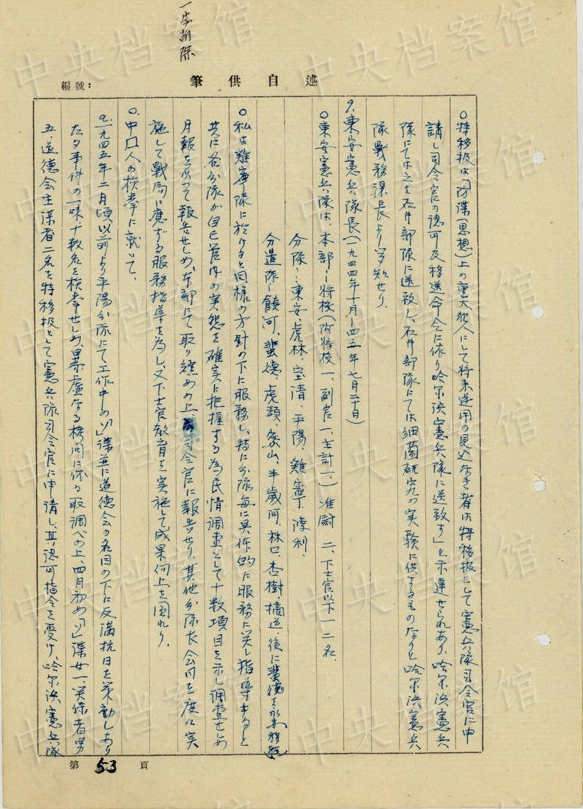 一字削除
編號：
筆供自述
○特移扱は「防諜(思想)上の重大犯人にして将来逆用の見込なき者は特移扱として憲兵隊司令官に申
請し司令官の認可及移送命令に依り哈尓浜憲兵隊に逆致す」と示達せられあり、哈尓浜憲兵
隊にては之を石井部隊に送致し、石井部隊にては細菌研究の実験に供するものなりと哈尓浜憲兵
隊戦務課長より聞知せり。
9、東安憲兵隊長(一九四四年十月―四五年七月二十日)
○東安憲兵隊は、本部―将校(附将校一、副官一、主計一)准尉二、下士官以下一二名
分隊―東安、虎林、宝清、平陽、鶏寧、勃利、
分遣隊―饒河、斐徳、虎頭、密山、半截河、林口、杏樹、
○私は鶏寧隊に於けると同様の方針の下に服務し、特に分隊毎に具体的に服務に関し指導すると
共に各分隊が自己管内の実態を確実に把握する為民情調査として十数項目を示し調査せしめ
月報を以て報告せしめ、本部にて取り纏めの上司令官に報告せり。其他分隊長会同を度々実
施して戦局に応ずる服務指導を為し又下士官教育を実施して成果向上を図れり。
○、中国人の検挙に就いて。
a、一九四五年二月頃以前より平陽分隊にて工作中の「ソ」諜並に道徳会の名目の下に反満抗日を策動しあり
た夕事件の一味十数名を検挙せしめ、暴虐なる拷問に依る取調べの上、四月初め「ソ」諜女一、関係者男
五、道徳会主謀者二名を特移扱として憲兵隊司令官に申請し、其認可指令を受け、哈尓浜憲兵隊
第 53 頁
中央档案馆